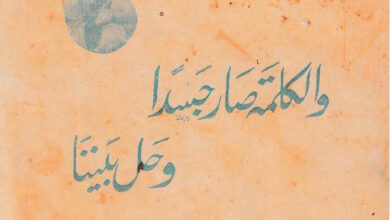 والكلمة صار جسدًا
وحل بيننا